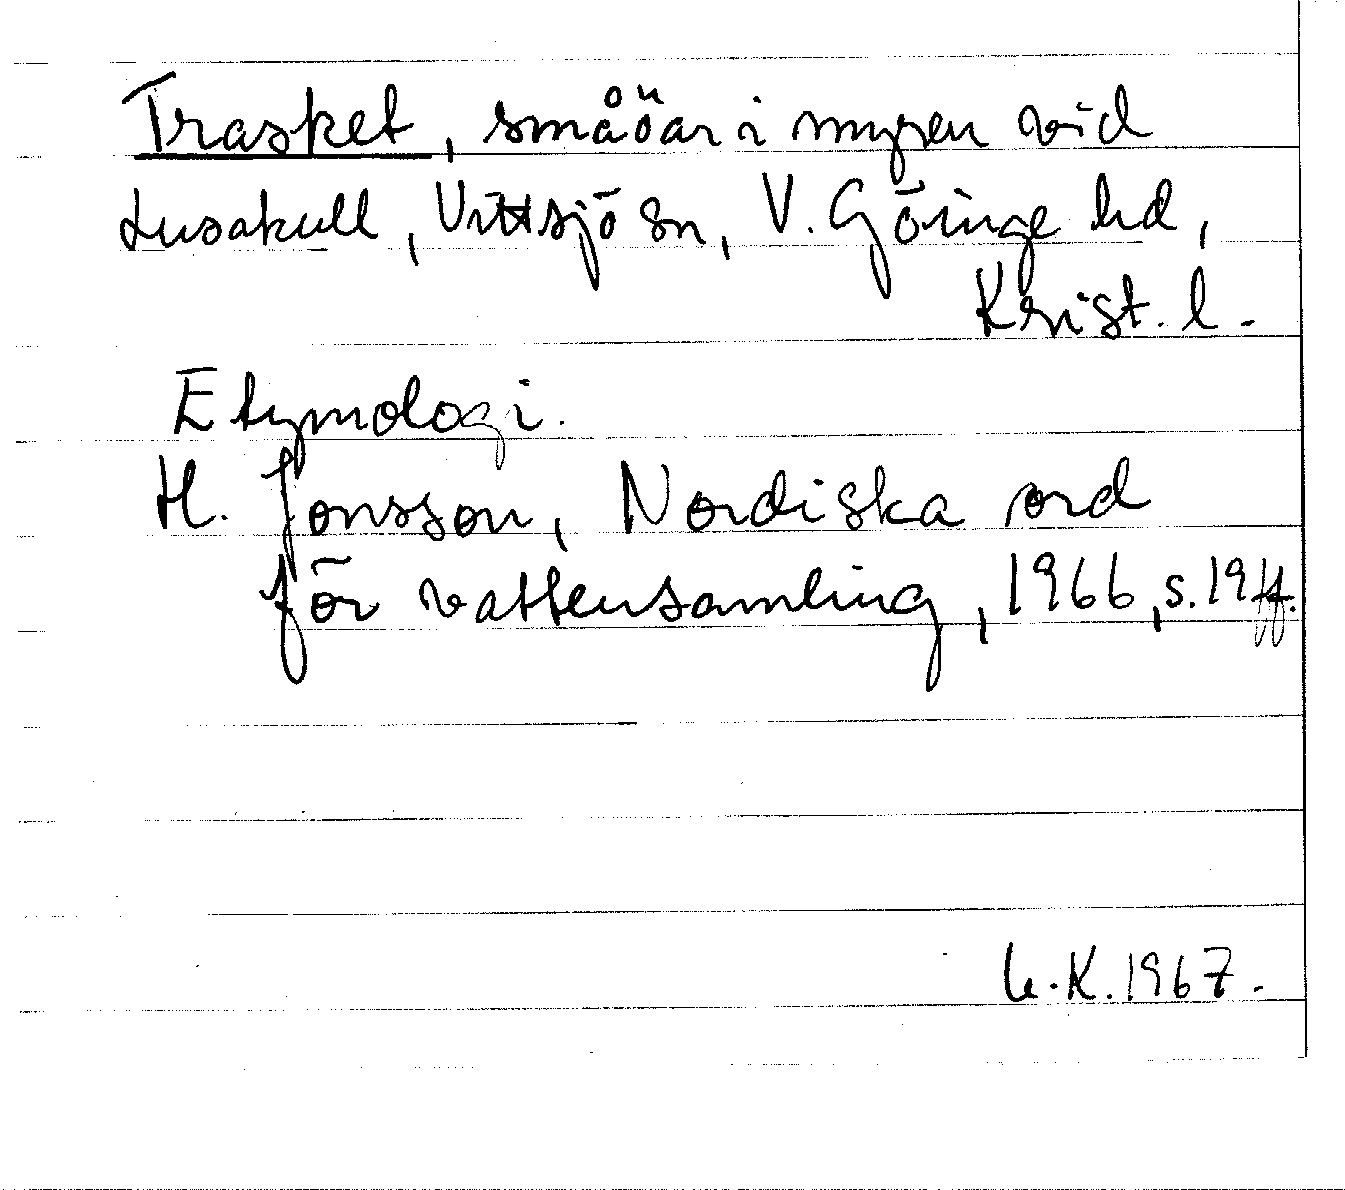 Trasket, småöar i myren vid
Lusakull, Vittsjö sn, V. Göinge hd,
Krist. l.
Etymologi.
H. Jonsson, Nordiska ord
för vattensamling, 1966, s. 19 ff.
U.K. 1967.